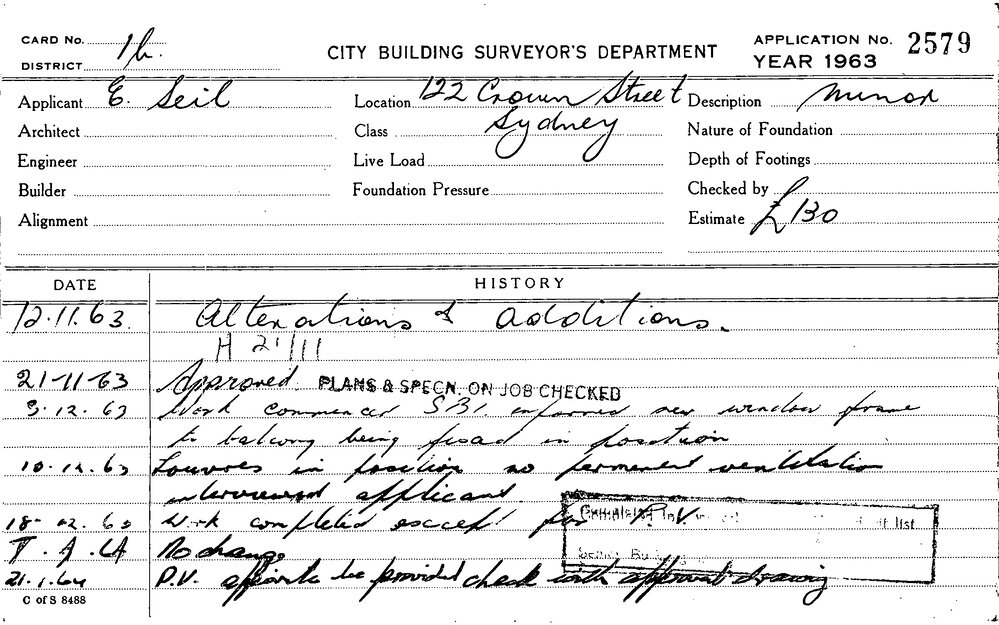 CARD No. 1b.
DISTRICT
CITY BUILDING SURVEYOR'S DEPARTMENT
APPLICATION No. 2579
YEAR 1963
Applicant E. Seil
Location 122 Crown Street
Sydney
Description Minor
Architect
Class
Nature of Foundation
Engineer
Live Load
Depth of Footings
Builder
Foundation Pressure
Checked by
Alignment
Estimate £130
DATE HISTORY
12.11.63. Alterations & additions.
H 21/11
21-11-63 Approved. PLANS & SPECN. ON JOB CHECKED
3.12.63 Work commenced SBI informed new window frame
to balcony being fixed in position
10.12.63 Louvres in position no permanent ventilation
interviewed applicant.
18.12.63 Work completed except for P.V.
No change
21.1.64 P.V. to be provided check with approved drawing
list
C of S 8488